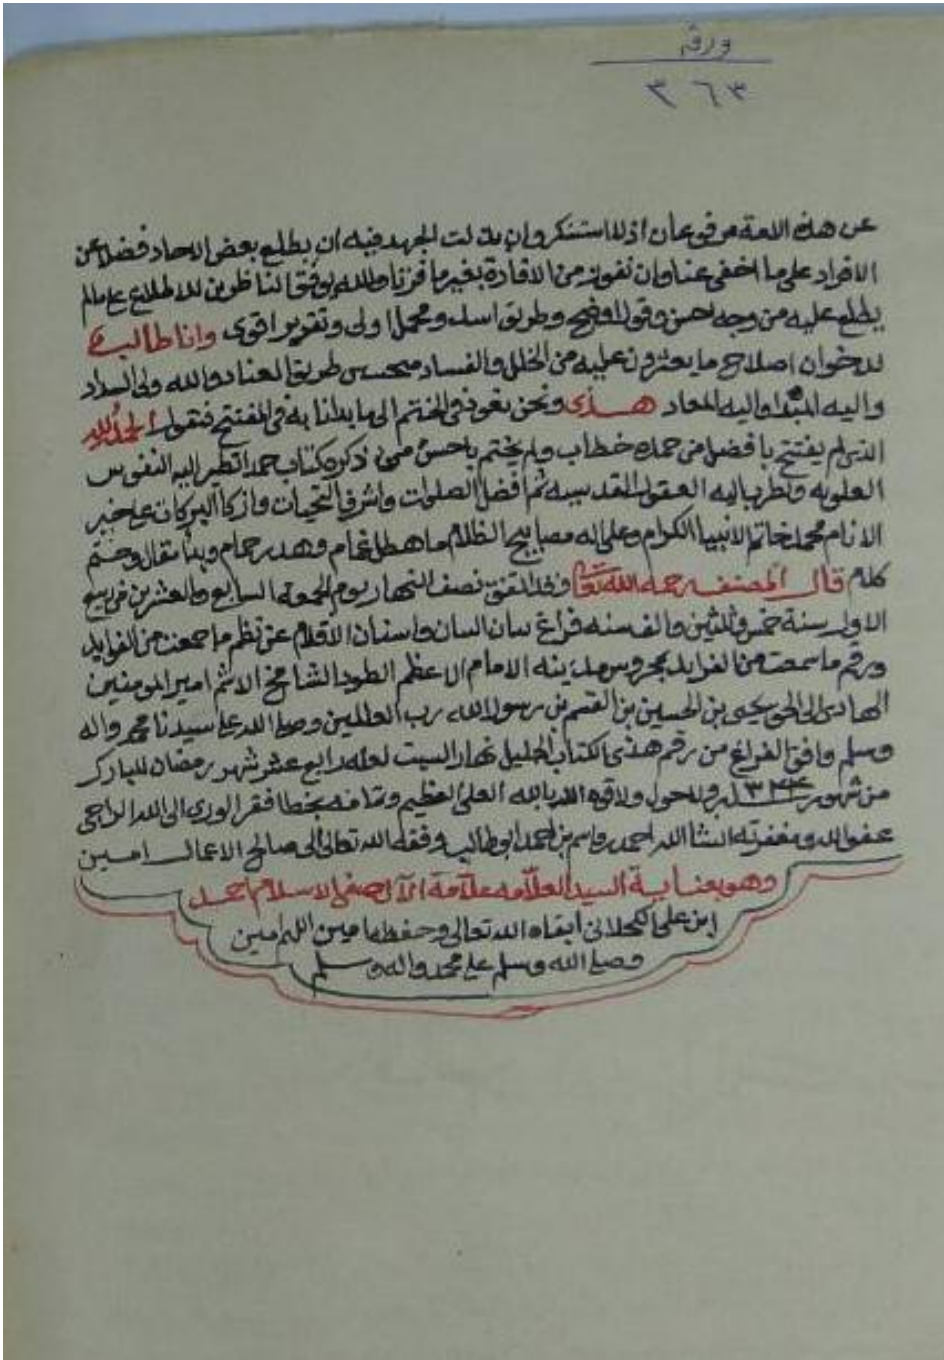 ورقة
٣٦٣
عن هذه الامة مرفوعان اذ لا استنكر وان بذلت الجهد فيه ان يطلع بعض الاحاد فضلا عن
الافراد على ما اخفى عنا وان نفوز من الافادة بغير ما قرنا والله يوفق الناظرين للاطلاع على مالم
يطلع عليه من وجه احسن وقول اوضح وطريق اسد ومحمل اولى وتقرير اقوى وانا طالب
للاخوان اصلاح ما يعثرون عليه من الخلل والفساد طريق العناد والله ولي السداد
واليه المبتدا واليه المعاد هذى ونحن نعود في المختم الى ما بدانا به في المفتتح فنقول الحمد لله
الذي لم يفتتح بافضل من حمده خطاب ولم يختم باحسن من ذكره كتاب حمدا تطير اليه النفوس
العلويه وتطرب اليه العقول القدسيه ثم افضل الصلوات واشرف التحيات وازكا البركات على خير
الانام محمد خاتم الانبيا الكرام وعلى اله مصابيح الظلام ما هطل غمام وهدر حمام وبدا مقال وختم
كلام قال المصنف رحمه الله تعا وقد اتفق نصف النهار يوم الجمعة السابع والعشرين من ربيع
الاول سنة خمس وثلثين والف سنه فراغ بيان البيان واسنان الاقلام عن نظم ما جمعت من الفوايد
ورقم ما سمعت من الفرايد بمحروس مدينه الامام الاعظم الطود الشامخ الاشم امير المومنين
الهادى الى الحق يحيى بن الحسين بن القسم بن رسول الله رب العالمين وصلى الله على سيدنا محمد واله
وسلم وافق الفراغ من رقم هذى الكتاب الجليل نهار السبت لعله رابع عشر شهر رمضان المبارك
من شهور ولا حول ولا قوه الا بالله العلي العظيم بخط افقر الورى الى الله الراجى
عفو الله ومغفرته انشا الله احمد بن قاسم بن احمد ابوطالب وفقه الله تعالى الى صالح الاعمال امين
وهو بعناية السيد العلامه علامة الآل صفي الاسلام احمد
ابن على الكحلانى ابقاه الله تعالى وحفظه امين اللهم امين
وصلى الله وسلم على محمد واله وسلم